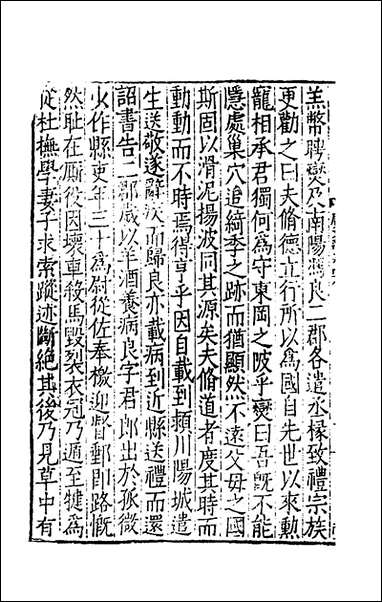 羔幣聘燮及南陽馮良二郡各遣丞掾致禮宗族
更勸之曰夫脩德立行所以爲國自先世以來勲
寵相承君獨何爲守東岡之陂乎燮曰吾既不能
隱處巢穴追綺季之跡而猶顯然不遠父母之國
斯固以滑泥揚波同其源矣夫脩道者度其時而
動動而不時焉得亨乎因自載到頴川陽城遣
生送敬遂辭疾而歸良亦載病到近縣送禮而還
詔書告二郡歲以羊酒養病良字君郎出於孤微
少作縣吏年三十爲尉從佐奉檄迎督郵即路慨
然耻在厮役因壞車殺馬毀裂衣冠乃遁至犍爲
從杜撫學妻子求索蹤迹斷絶其後乃見草中有